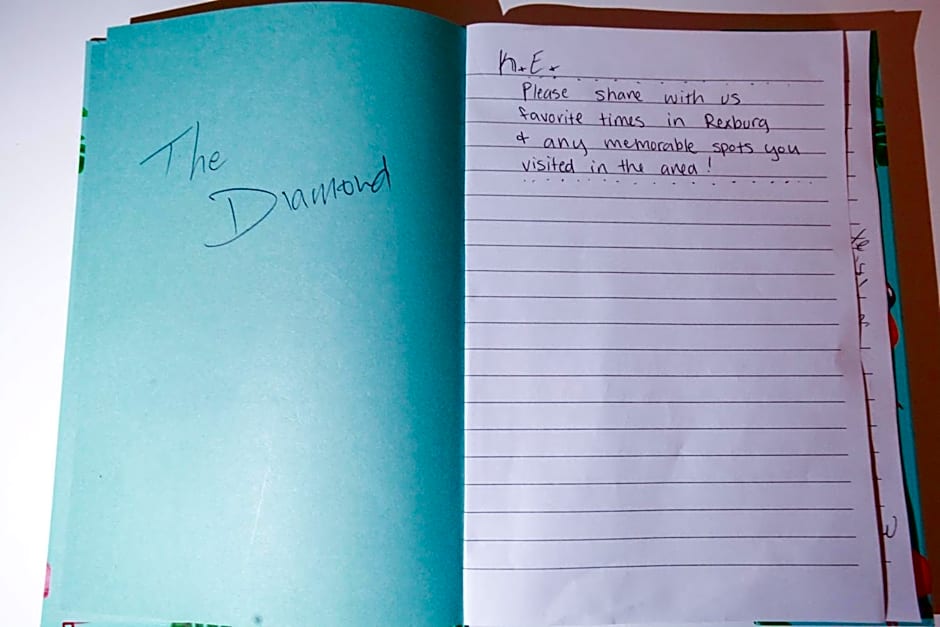 The
Diamond
K.E.
Please share with us
favorite times in Rexburg
& any memorable spots you
visited in the area!